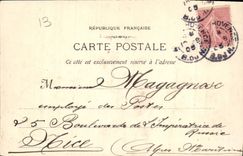 13
RÉPUBLIQUE FRANÇAISE
CARTE POSTALE
Ce côté est exclusivement réservé à l'adresse
Monsieur Magagnosc
employé des Postes
25 Boulevard de l'Impératrice de
Russie
Nice
(Alpes Maritimes